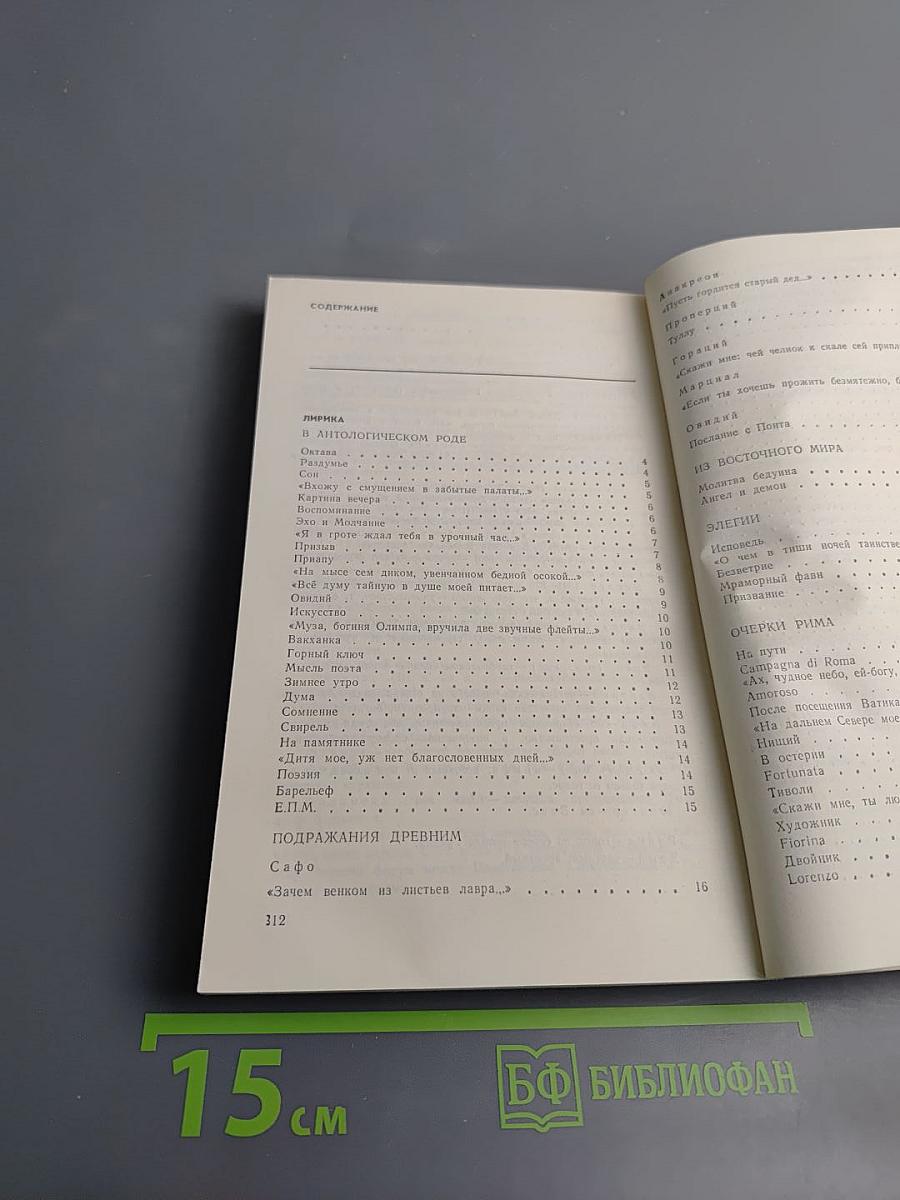 СОДЕРЖАНИЕ
ЛИРИКА
В АНТОЛОГИЧЕСКОМ РОДЕ
Октава . . . 4
Раздумье . . . 4
Сон . . . 5
«Вхожу с смущением в забытые палаты...» . . . 5
Картина вечера . . . 6
Воспоминание . . . 6
Эхо и Молчание . . . 6
«Я в гроте ждал тебя в урочный час...» . . . 7
Призыв . . . 7
Приапу . . . 8
«На мысе сем диком, увенчанном бедной осокой...» . . . 8
«Всё думу тайную в душе моей питает...» . . . 9
Овидий . . . 9
Искусство . . . 10
«Муза, богиня Олимпа, вручила две звучные флейты...» . . . 10
Вакханка . . . 10
Горный ключ . . . 11
Мысль поэта . . . 11
Зимнее утро . . . 12
Дума . . . 12
Сомнение . . . 13
Свирель . . . 13
На памятнике . . . 14
«Дитя мое, уж нет благословенных дней...» . . . 14
Поэзия . . . 14
Барельеф . . . 15
Е.П.М. . . . 15
ПОДРАЖАНИЯ ДРЕВНИМ
Сафо
«Зачем венком из листьев лавра...» . . . 16
312
Анакреон
«Пусть гордится старый дед...» . . .
Проперций
Туллу . . .
Гораций
«Скажи мне: чей челнок к скале сей
Марциал
«Если ты хочешь прожить безмятежно,
Овидий
Послание с Понта . . .
ИЗ ВОСТОЧНОГО МИРА
Молитва бедуина . . .
Ангел и демон . . .
ЭЛЕГИИ
Исповедь . . .
«О чем в тиши ночей
Безветрие . . .
Мраморный фавн . . .
Призвание . . .
ОЧЕРКИ РИМА
На пути . . .
Campagna di Roma . . .
«Ах, чудное небо, ей-богу,
Amoroso . . .
После посещения
«На дальнем Севере
Нищий . . .
В остерии . . .
Fortunata . . .
Тиволи . . .
«Скажи мне, ты
Художник . . .
Fiorina . . .
Двойник . . .
Lorenzo . . .
15 см
БФ БИБЛИОФАН